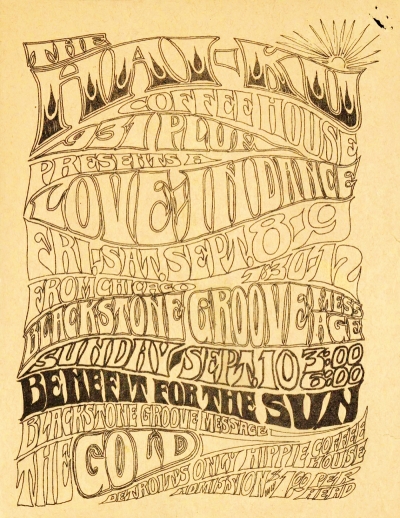 THE
HAI-KU
COFFEE HOUSE
937 PLUE
PRESENTS A
LOVE-IN DANCE
FRI. SAT. SEPT. 8-9
7:30-12
FROM CHICAGO
BLACKSTONE GROOVE MESSAGE
SUNDAY SEPT. 10 3:00 6:00
BENEFIT FOR THE SUN
BLACKSTONE GROOVE MESSAGE
THE GOLD
DETROIT'S ONLY HIPPIE COFFEE HOUSE
ADMISSION $1.00 PER HEAD